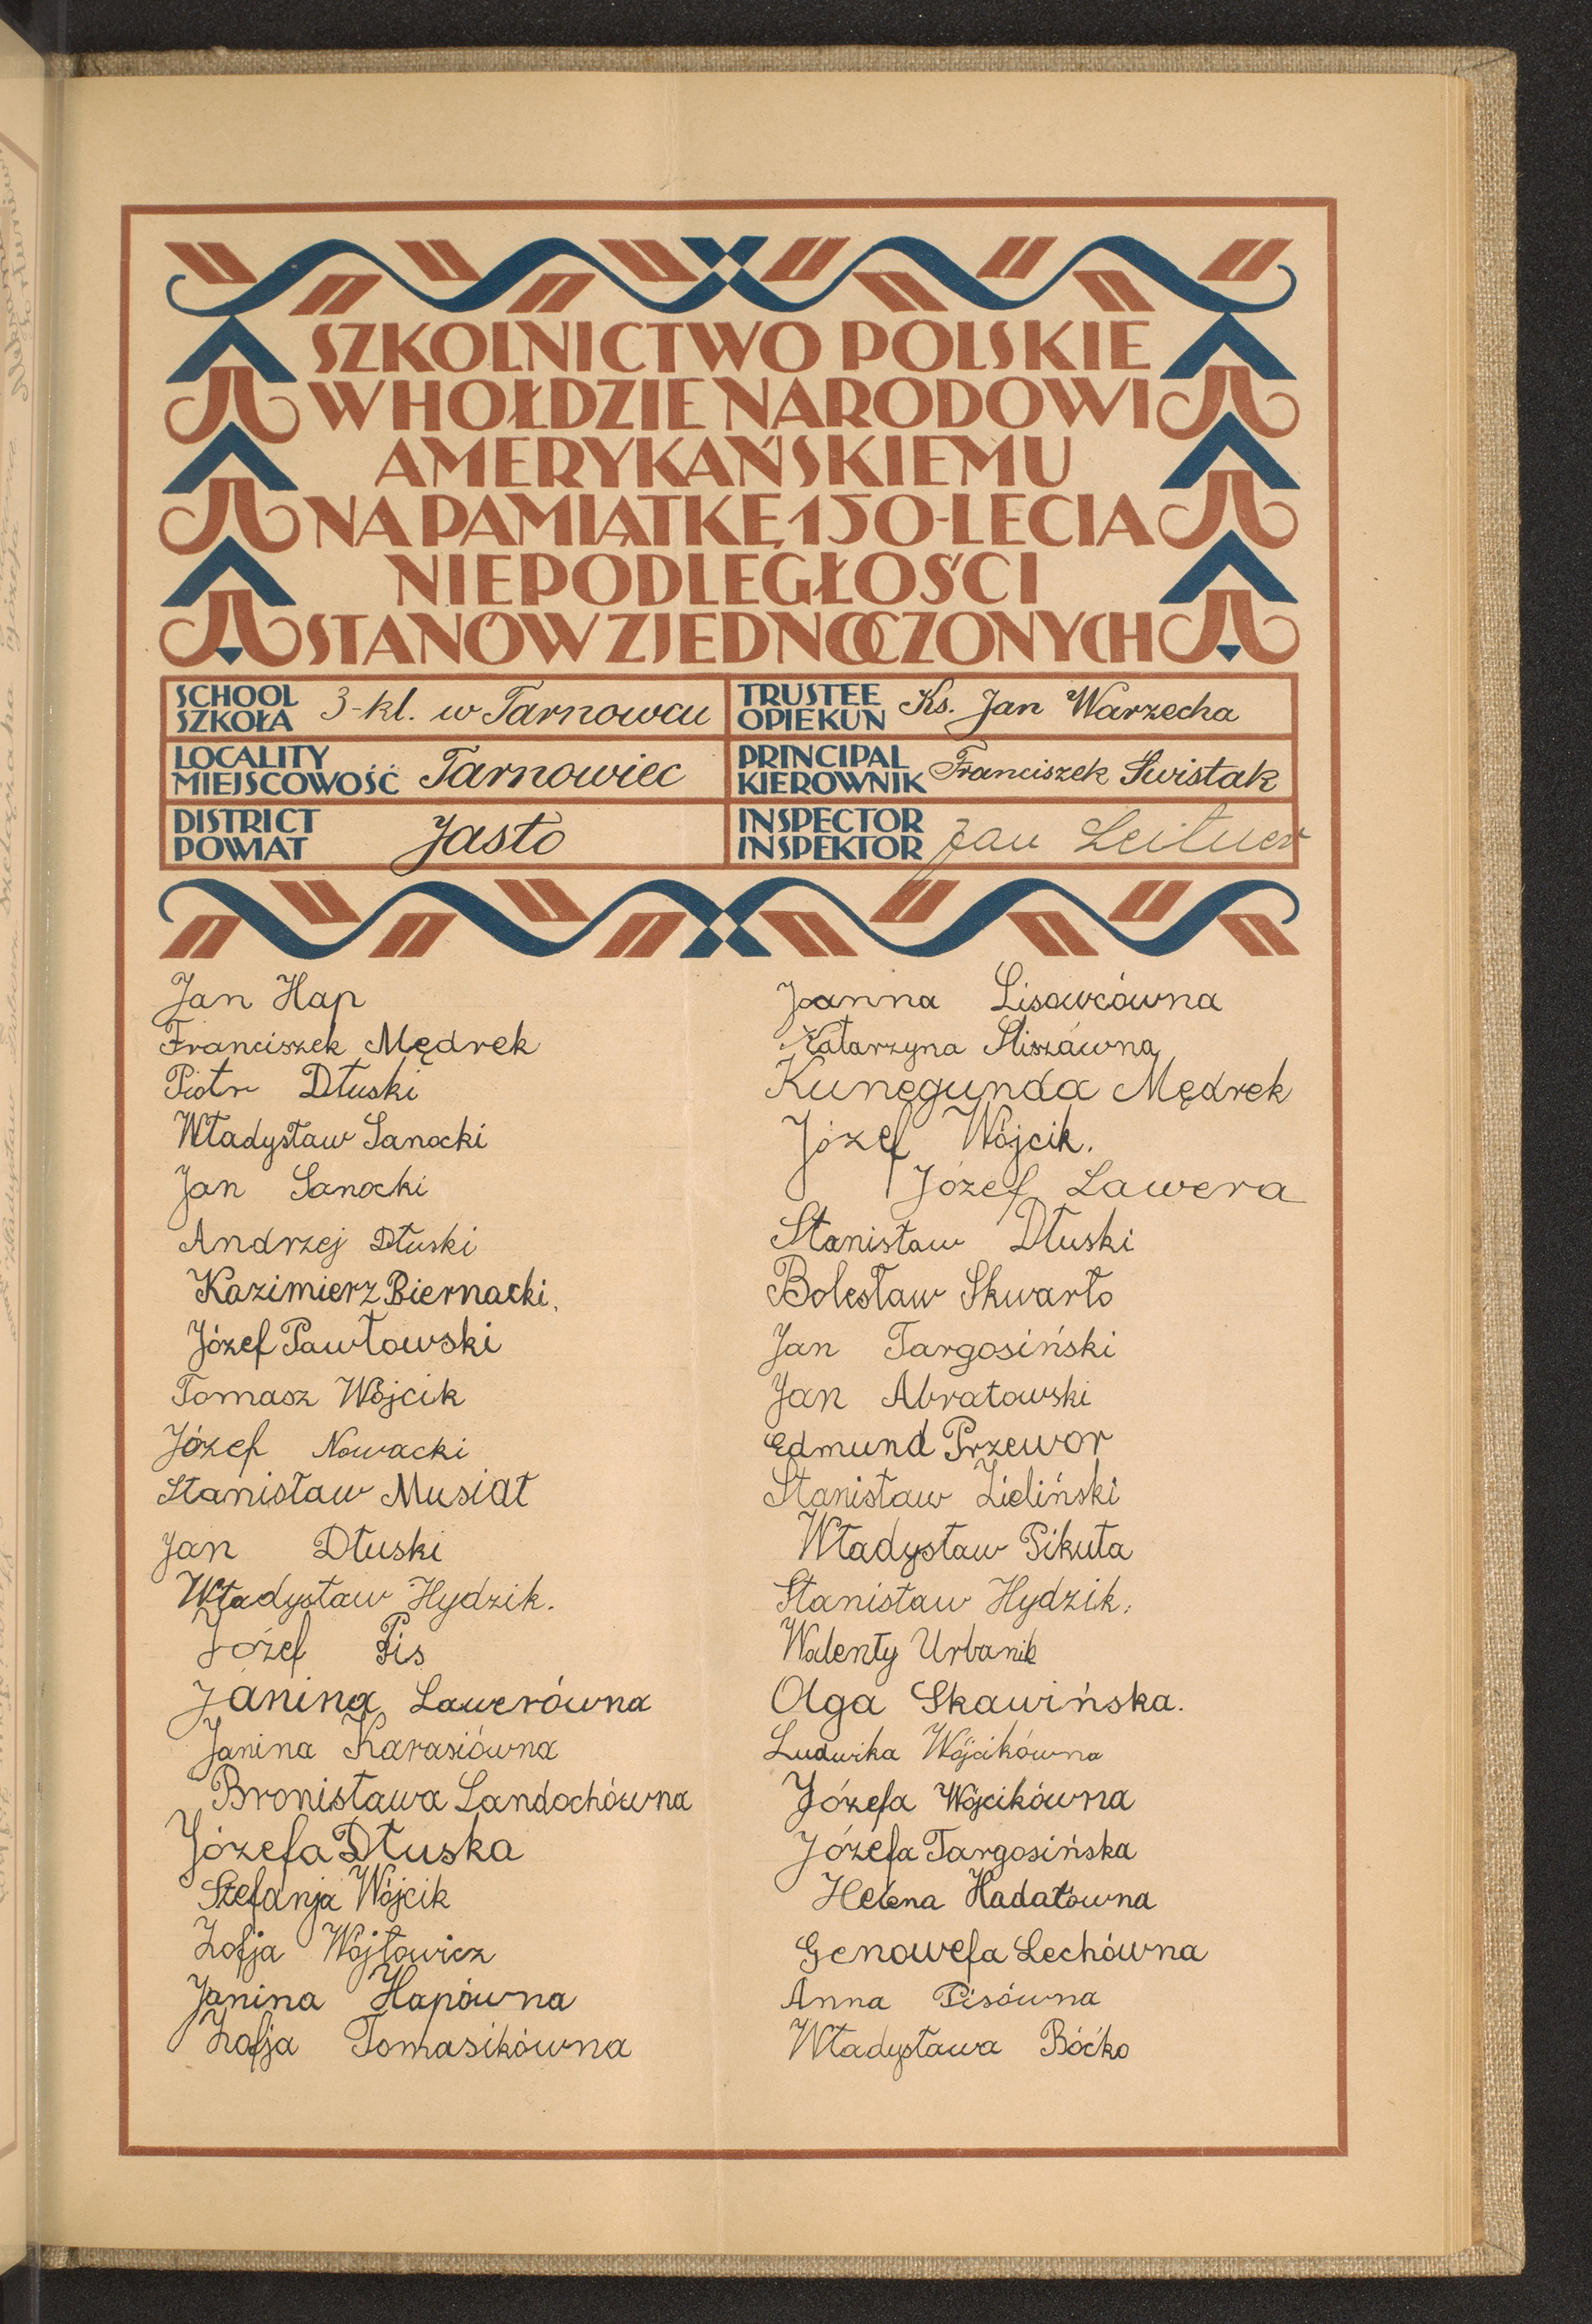 SZKOLNICTWO POLSKIE
W HOŁDZIE NARODOWI
AMERYKAŃSKIEMU
NA PAMIĄTKĘ 150-LECIA
NIEPODLEGŁOŚCI
STANÓW ZJEDNOCZONYCH
SCHOOL
SZKOŁA 3-kl. w Tarnowcu
TRUSTEE
OPIEKUN Ks. Jan Warzecha
LOCALITY
MIEJSCOWOŚĆ Tarnowiec
PRINCIPAL
KIEROWNIK Franciszek Swistak
DISTRICT
POWIAT Jasło
INSPECTOR
INSPEKTOR Jan Leitner
Jan Hap
Franciszek Mędrek
Piotr Dłuski
Władysław Sanocki
Jan Sanocki
Andrzej Dłuski
Kazimierz Biernacki.
Józef Pawłowski
Tomasz Wójcik
Józef Nowacki
Stanisław Musiał
Jan Dłuski
Władysław Hydzik.
Józef Pis
Janina Lawerówna
Janina Karasiówna
Bronisława Landochówna
Józefa Dłuska
Stefanja Wójcik
Zofja Wójtowicz
Janina Hapówna
Zofja Tomasikówna
Joanna Lisowcówna
Katarzyna
Kunegunda Mędrek
Józef Wójcik.
Józef Lawera
Stanisław Dłuski
Bolesław Skwarło
Jan Targosiński
Jan Abratowski
Edmund Przewor
Stanisław Zieliński
Władysław Pikuła
Stanisław Hydzik.
Walenty Urbanik
Olga Skawińska.
Ludwika Wójcikówna
Józefa Wójcikówna
Józefa Targosińska
Helena Hadałówna
Genowefa Lechówna
Anna Pisówna
Władysława Bóćko